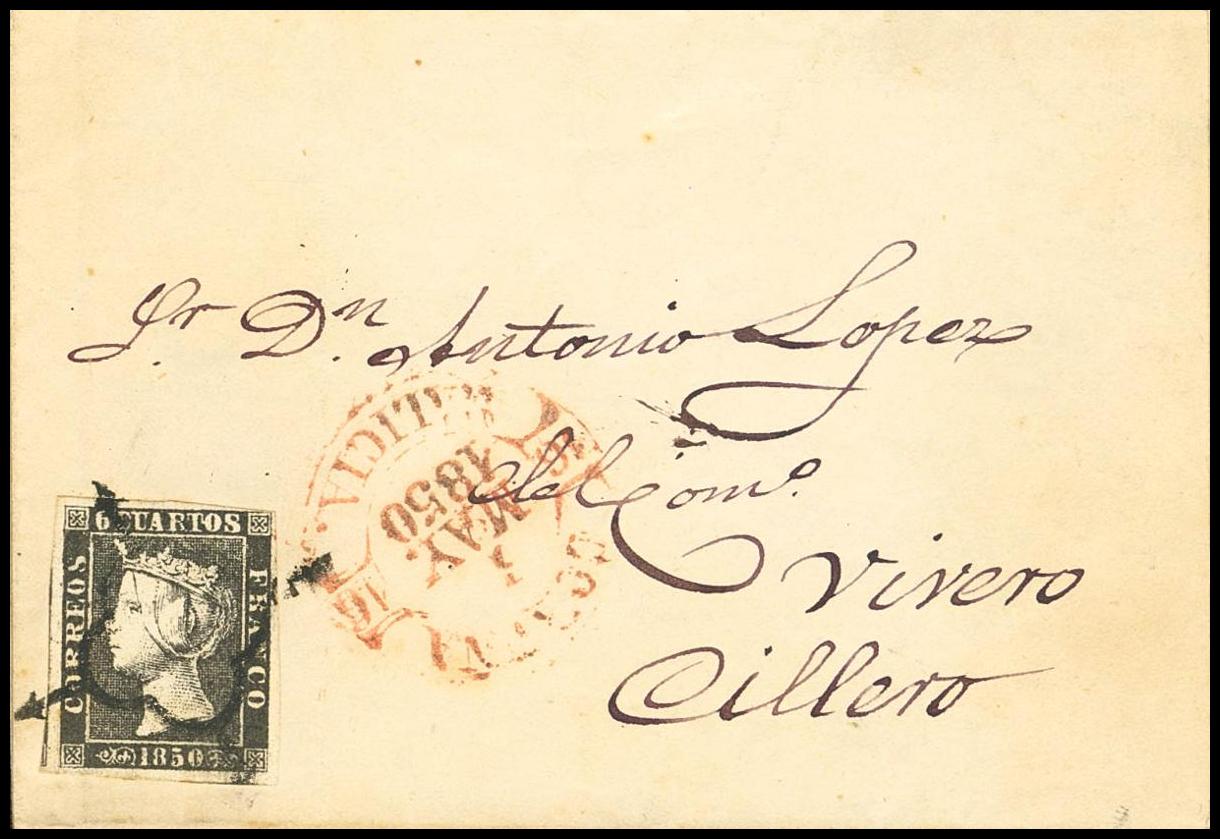 Sr. Dn. Antonio Lopez
del Como.
Vivero
Cillero
6 CUARTOS
CORREOS
FRANCO
1850
1
MAY.
1850
GALICIA.